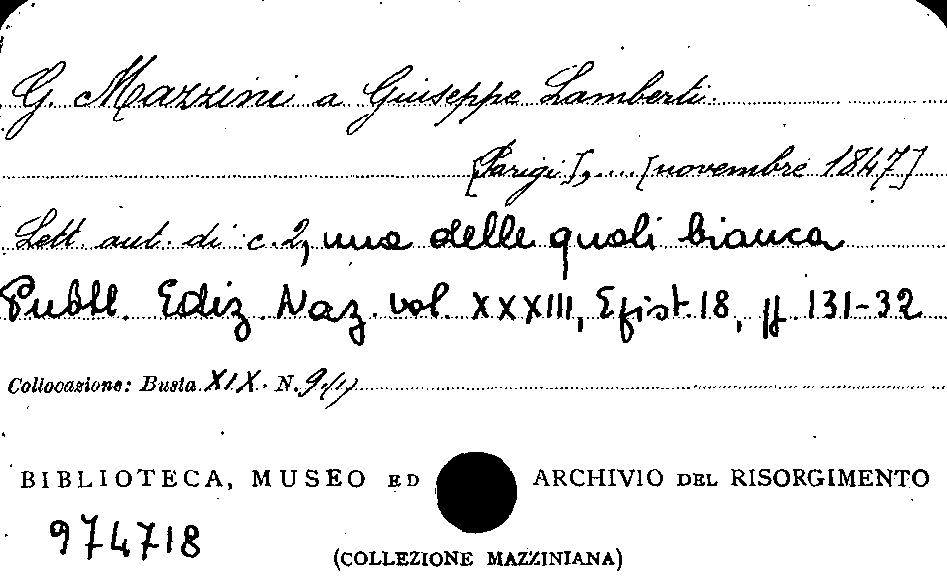 G. Mazzini a Giuseppe Lamberti.
[Parigi], .... [novembre 1847]
Lett. aut. di c. 2, una delle quali bianca
Pubbl. Ediz. Naz. vol XXXIII, Epist. 18, pp. 131-32
Collocazione: Busta XIX. N. 9/(1)
BIBLIOTECA, MUSEO ED ARCHIVIO DEL RISORGIMENTO
974718
(COLLEZIONE MAZZINIANA)